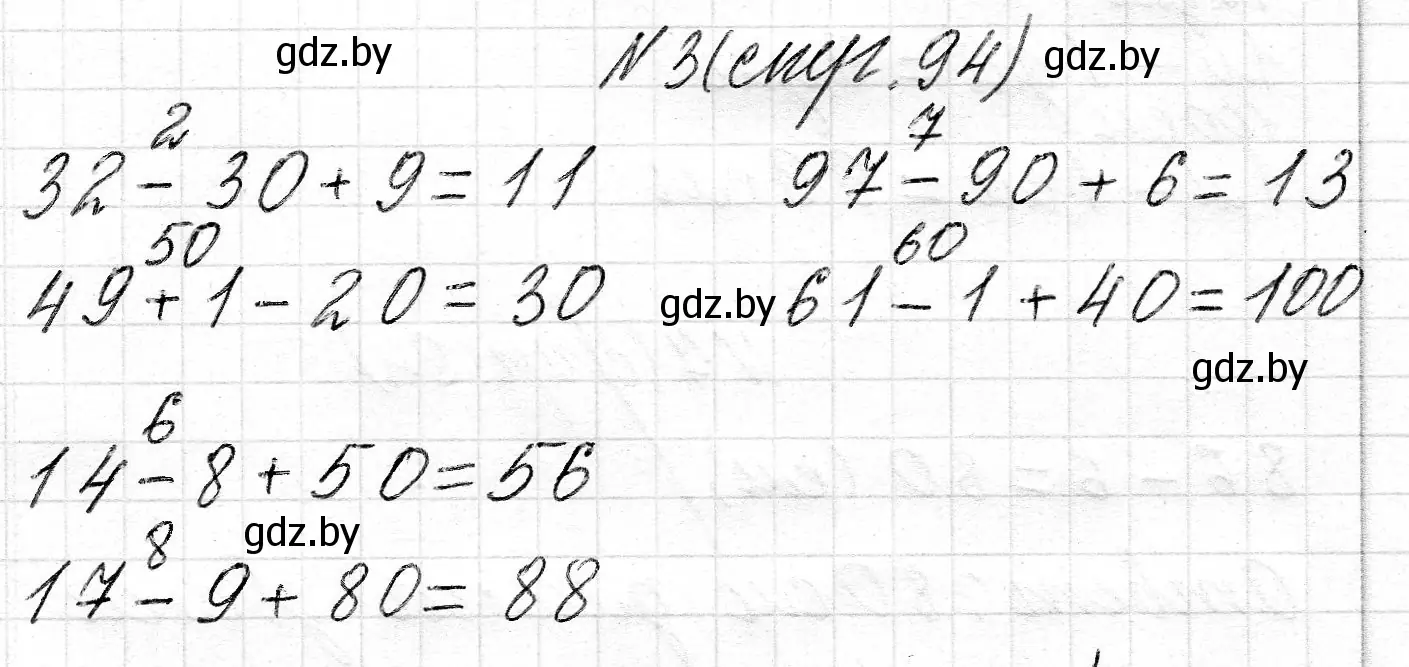 gdz.by № 3 (стр. 94) gdz.by
2 7
32 - 30 + 9 = 11 97 - 90 + 6 = 13
50 60
49 + 1 - 20 = 30 gdz.by 61 - 1 + 40 = 100
gdz.by
6
14 - 8 + 50 = 56
gdz.by
8
17 - 9 + 80 = 88